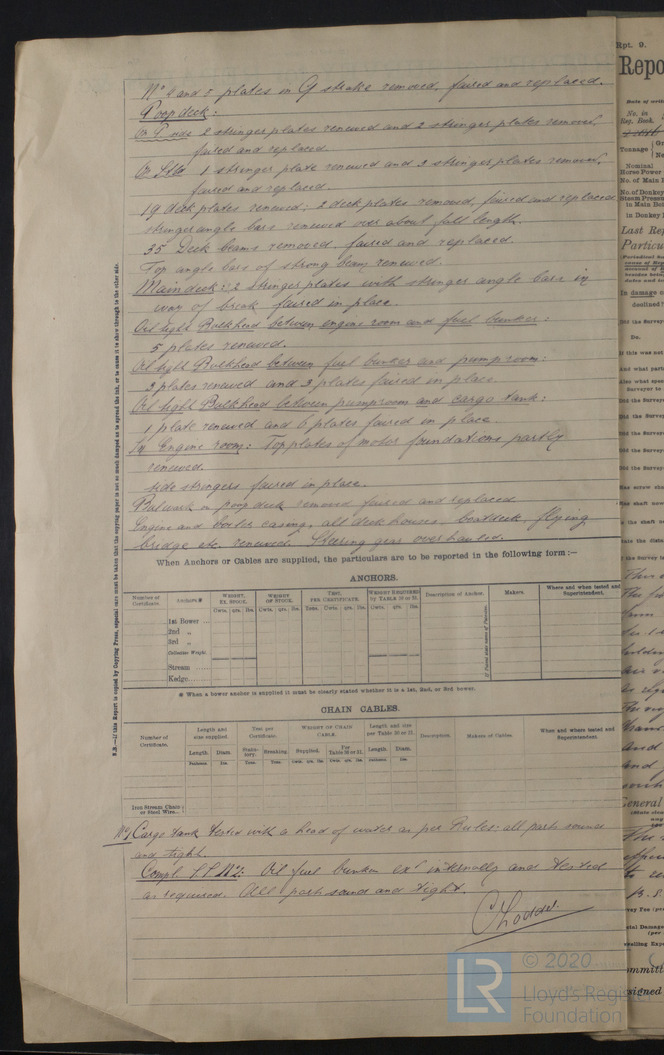 Nº 4 and 5 plates in G strake removed, faired and replaced.
Poop deck:
On P side 2 stringer plates renewed and 2 stringer plates removed,
faired and replaced.
On Stb 1 stringer plate renewed and 3 stringer plates removed,
faired and replaced.
19 deck plates renewed; 2 deck plates removed, faired and replaced
stringer angle bars renewed over about full length.
35 Deck beams removed, faired and replaced.
Top angle bars of strong beam renewed.
Main deck: 2 stringer plates with stringer angle bars in
way of break faired in place.
Oil tight Bulkhead between engine room and fuel bunker:
5 plates renewed.
Oil tight Bulkhead between fuel bunker and pumproom:
3 plates renewed and 3 plates faired in place.
Oil tight Bulkhead between pumproom and cargo tank:
1 plate renewed and 6 plates faired in place.
In Engine room: Top plates of motor foundations partly
renewed.
side stringers faired in place.
Bulwark on poop deck removed faired and replaced
Engine and boiler casing, all deck houses, boatdeck, flying
bridge etc. renewed. Steering gear overhauled.
N.B.—If this Report is copied by Copying Press, especial care must be taken that the copying paper is not so much damped as to spread the ink, or to cause it to show through to the other side.
When Anchors or Cables are supplied, the particulars are to be reported in the following form :—
ANCHORS.
Number of Certificate.
Anchors.*
WEIGHT, EX. STOCK.
WEIGHT OF STOCK.
TEST, PER CERTIFICATE.
WEIGHT REQUIRED by TABLE 30 or 31.
Description of Anchor.
Makers.
Where and when tested and Superintendent.
Cwts. qrs. lbs.
Cwts. qrs. lbs.
Tons. Cwts. qrs. lbs.
Cwts. qrs. lbs.
1st Bower ...
2nd „
3rd „
Collective Weight
Stream ......
Kedge........
* When a bower anchor is supplied it must be clearly stated whether it is a 1st, 2nd, or 3rd bower.
CHAIN CABLES.
Number of Certificate.
Length and size supplied.
Test per Certificate.
WEIGHT OF CHAIN CABLE.
Length and size per Table 30 or 31.
Description.
Makers of Cables.
When and where tested and Superintendent.
Length. Diam.
Statutory. Breaking.
Supplied. Per Table 30 or 31.
Length. Diam.
Fathoms. Ins. Tons. Tons. Cwts. qrs. lbs. Cwts. qrs. lbs. Fathoms. Ins.
Iron Stream Chain or Steel Wire...
Cargo tank tested with a head of water as per Rules: all parts sound
and tight.
Compl. Oil fuel bunker exd internally and tested
as required. All parts sound and tight.
Rpt. 9.
Repo
No. in
Reg. Book.
Tonnage
Nominal
Horse Power
No. of Main
No. of Donkey
Steam Pressure
in Main
in Donkey
Last Rep
Particu
In damage
General
© 2020
LR
Lloyd's Register
Foundation